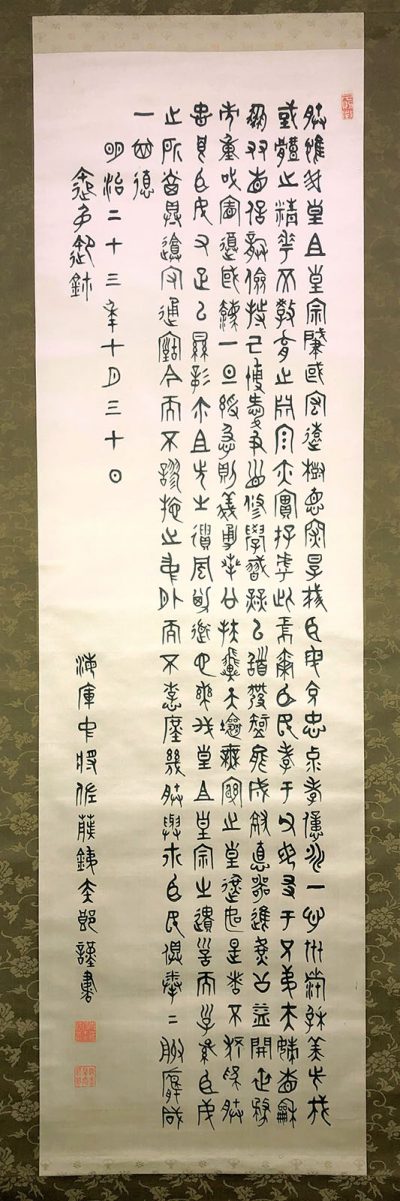 朕惟我皇祖皇宗肇國宏遠樹德深厚我臣民克忠克孝億兆一心世濟厥美是我
國體之精華而教育之淵源亦實存乎此焉爾臣民孝于父母友于兄弟夫婦相和
朋友相信恭儉持己博愛及衆修學習業以啓發智能成就德器進廣公益開世務
常重國憲遵國法一旦緩急則義勇奉公以扶翼天壤無窮之皇運如是者不獨朕
忠良臣民又足以顯彰爾祖先之遺風斯道也實我皇祖皇宗之遺訓而子孫臣民
之所當俱遵守通諸古今而不謬施之中外而不悖庶幾朕與爾臣民俱拳々服膺咸
一其德
明治二十三年十月三十日
御名御璽
海軍中將佐藤鐵太郎謹書